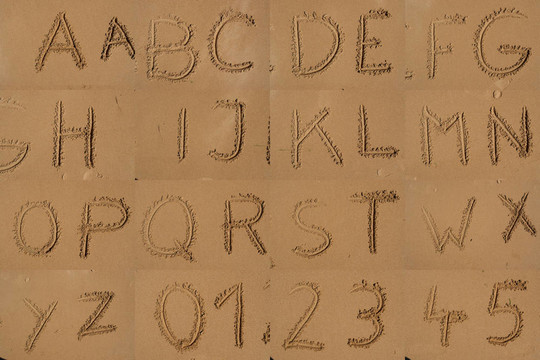 A A B C D E F G
G H I J K L M N
O P Q R S T W X
Y Z 0 1 2 3 4 5